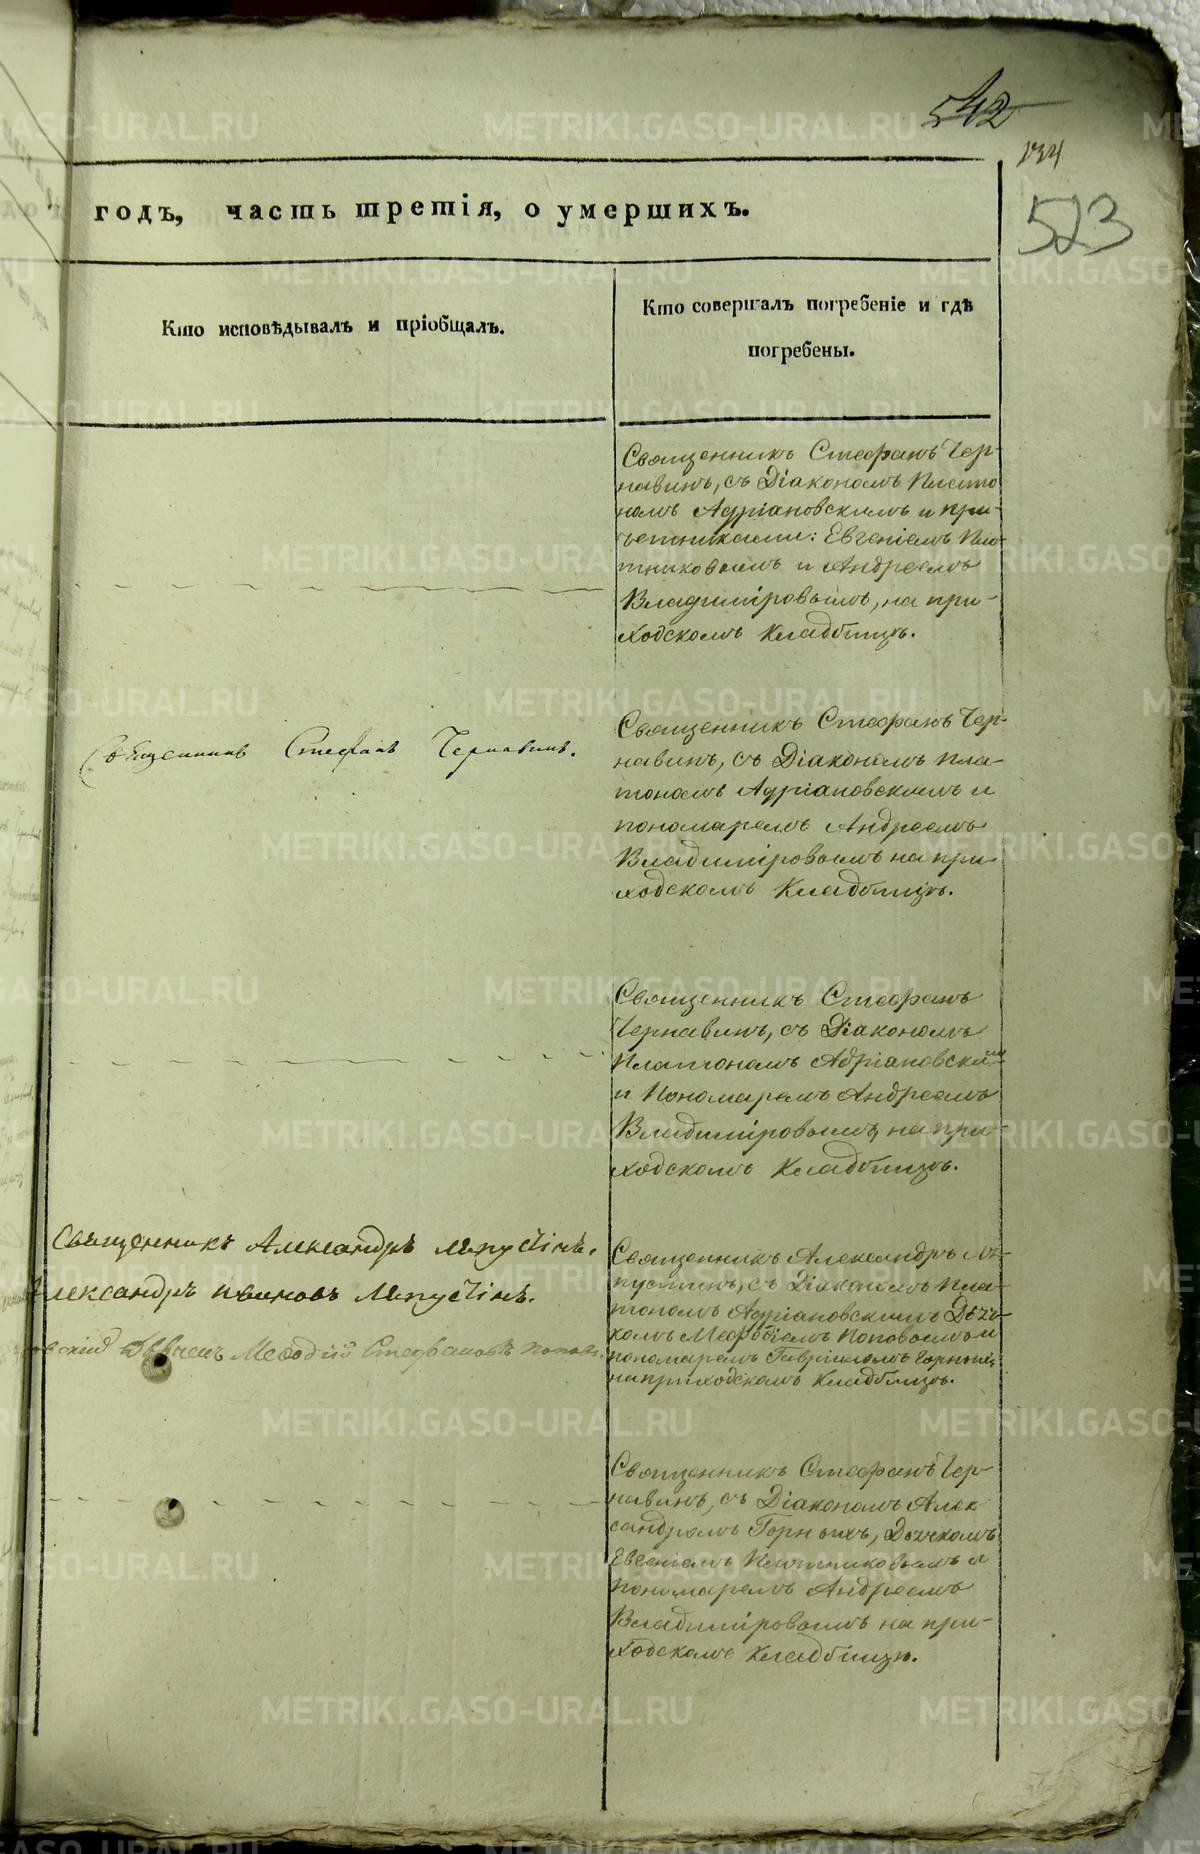 542
134
523
годъ, часть третія, о умершихъ.
Кто исповѣдывалъ и пріобщалъ.
Кто совершалъ погребеніе и гдѣ
погребены.
Священникъ Стефанъ Чер-
навинъ, съ Діакономъ Плато
номъ Адріановскимъ и при-
четниками: Евгеніемъ Пло-
тниковымъ и Андреемъ
Владиміровымъ, на при-
ходскомъ кладбищѣ.
Священникъ Стефанъ Чернавинъ.
Священникъ Стефанъ Чер-
навинъ, съ Діакономъ Пла-
тономъ Адріановскимъ и
пономаремъ Андреемъ
Владиміровымъ на при-
ходскомъ Кладбищѣ.
Священникъ Стефанъ
Чернавинъ, съ Діакономъ
Платономъ Адріановскимъ
и Пономаремъ Андреемъ
Владиміровымъ, на при-
ходскомъ Кладбищѣ.
Священникъ Александръ Лепустинъ.
Александръ Ивановъ Лепустинъ.
Дьячекъ Мефодій Стефановъ Поповъ.
Священникъ Александръ Ле-
пустинъ, съ Діакономъ Пла-
тономъ Адріановскимъ Дьяч-
комъ Мефодіемъ Поповымъ и
пономаремъ Гавріиломъ Горныхъ,
на приходскомъ Кладбищѣ.
Священникъ Стефанъ Чер-
навинъ, съ Діакономъ Алек
сандромъ Горныхъ, Дьячкомъ
Евгеніемъ Плотниковымъ и
Пономаремъ Андреемъ
Владиміровымъ на при-
ходскомъ кладбищѣ.
METRIKI.GASO-URAL.RU